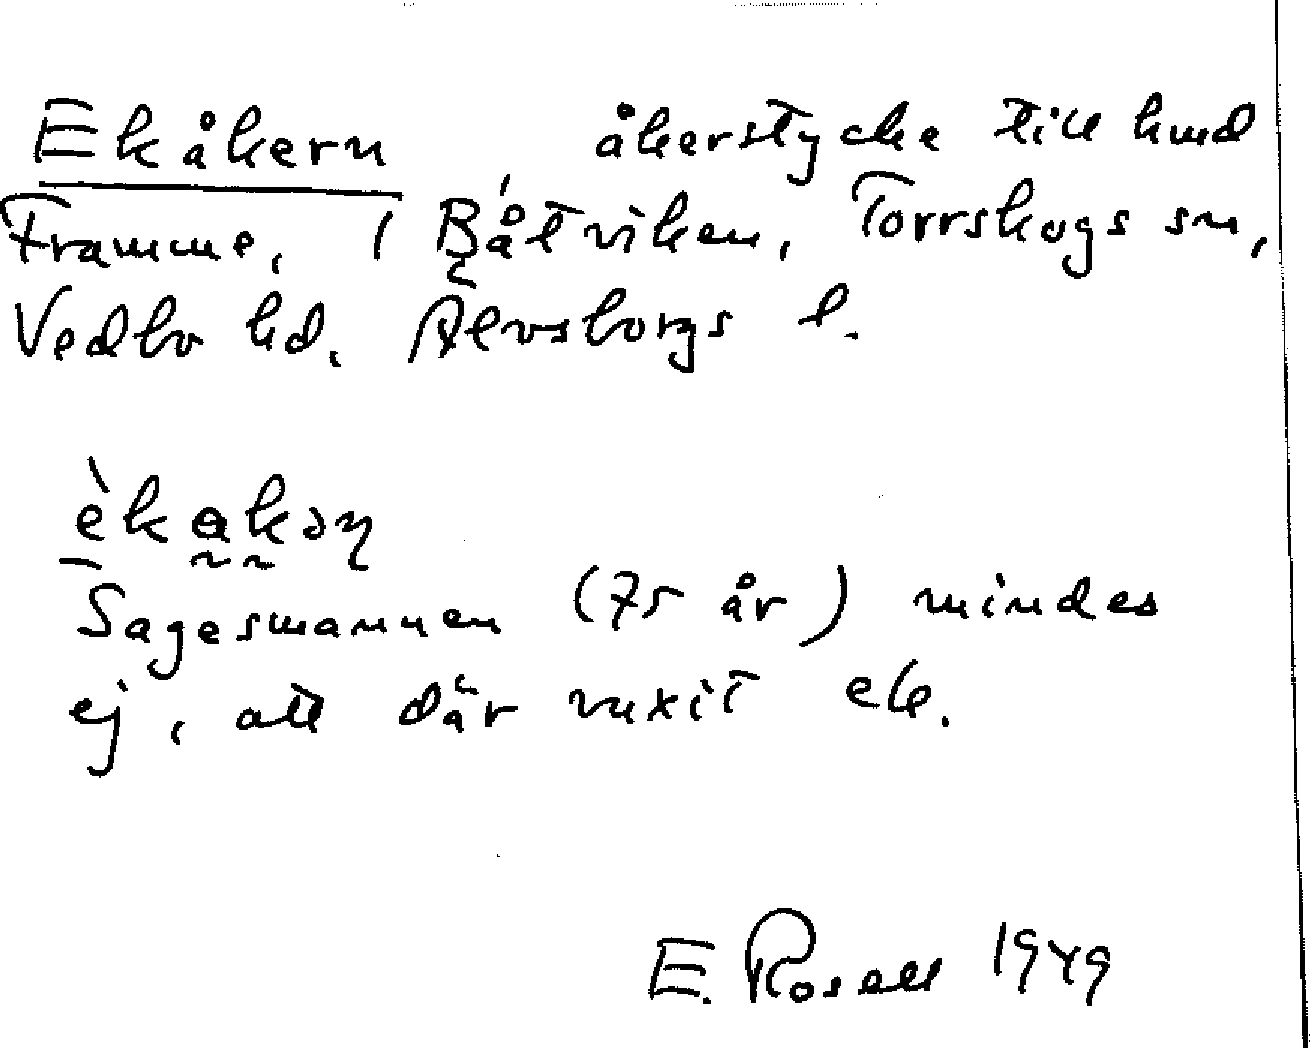 Ekåkern åkerstycke till hmd
Framme, i Båtviken, Torrskogs sn,
Vedbo hd. Älvsborgs l.
Sagesmannen (75 år) mindes
ej, att där vuxit ek.
E. Rosell 1949